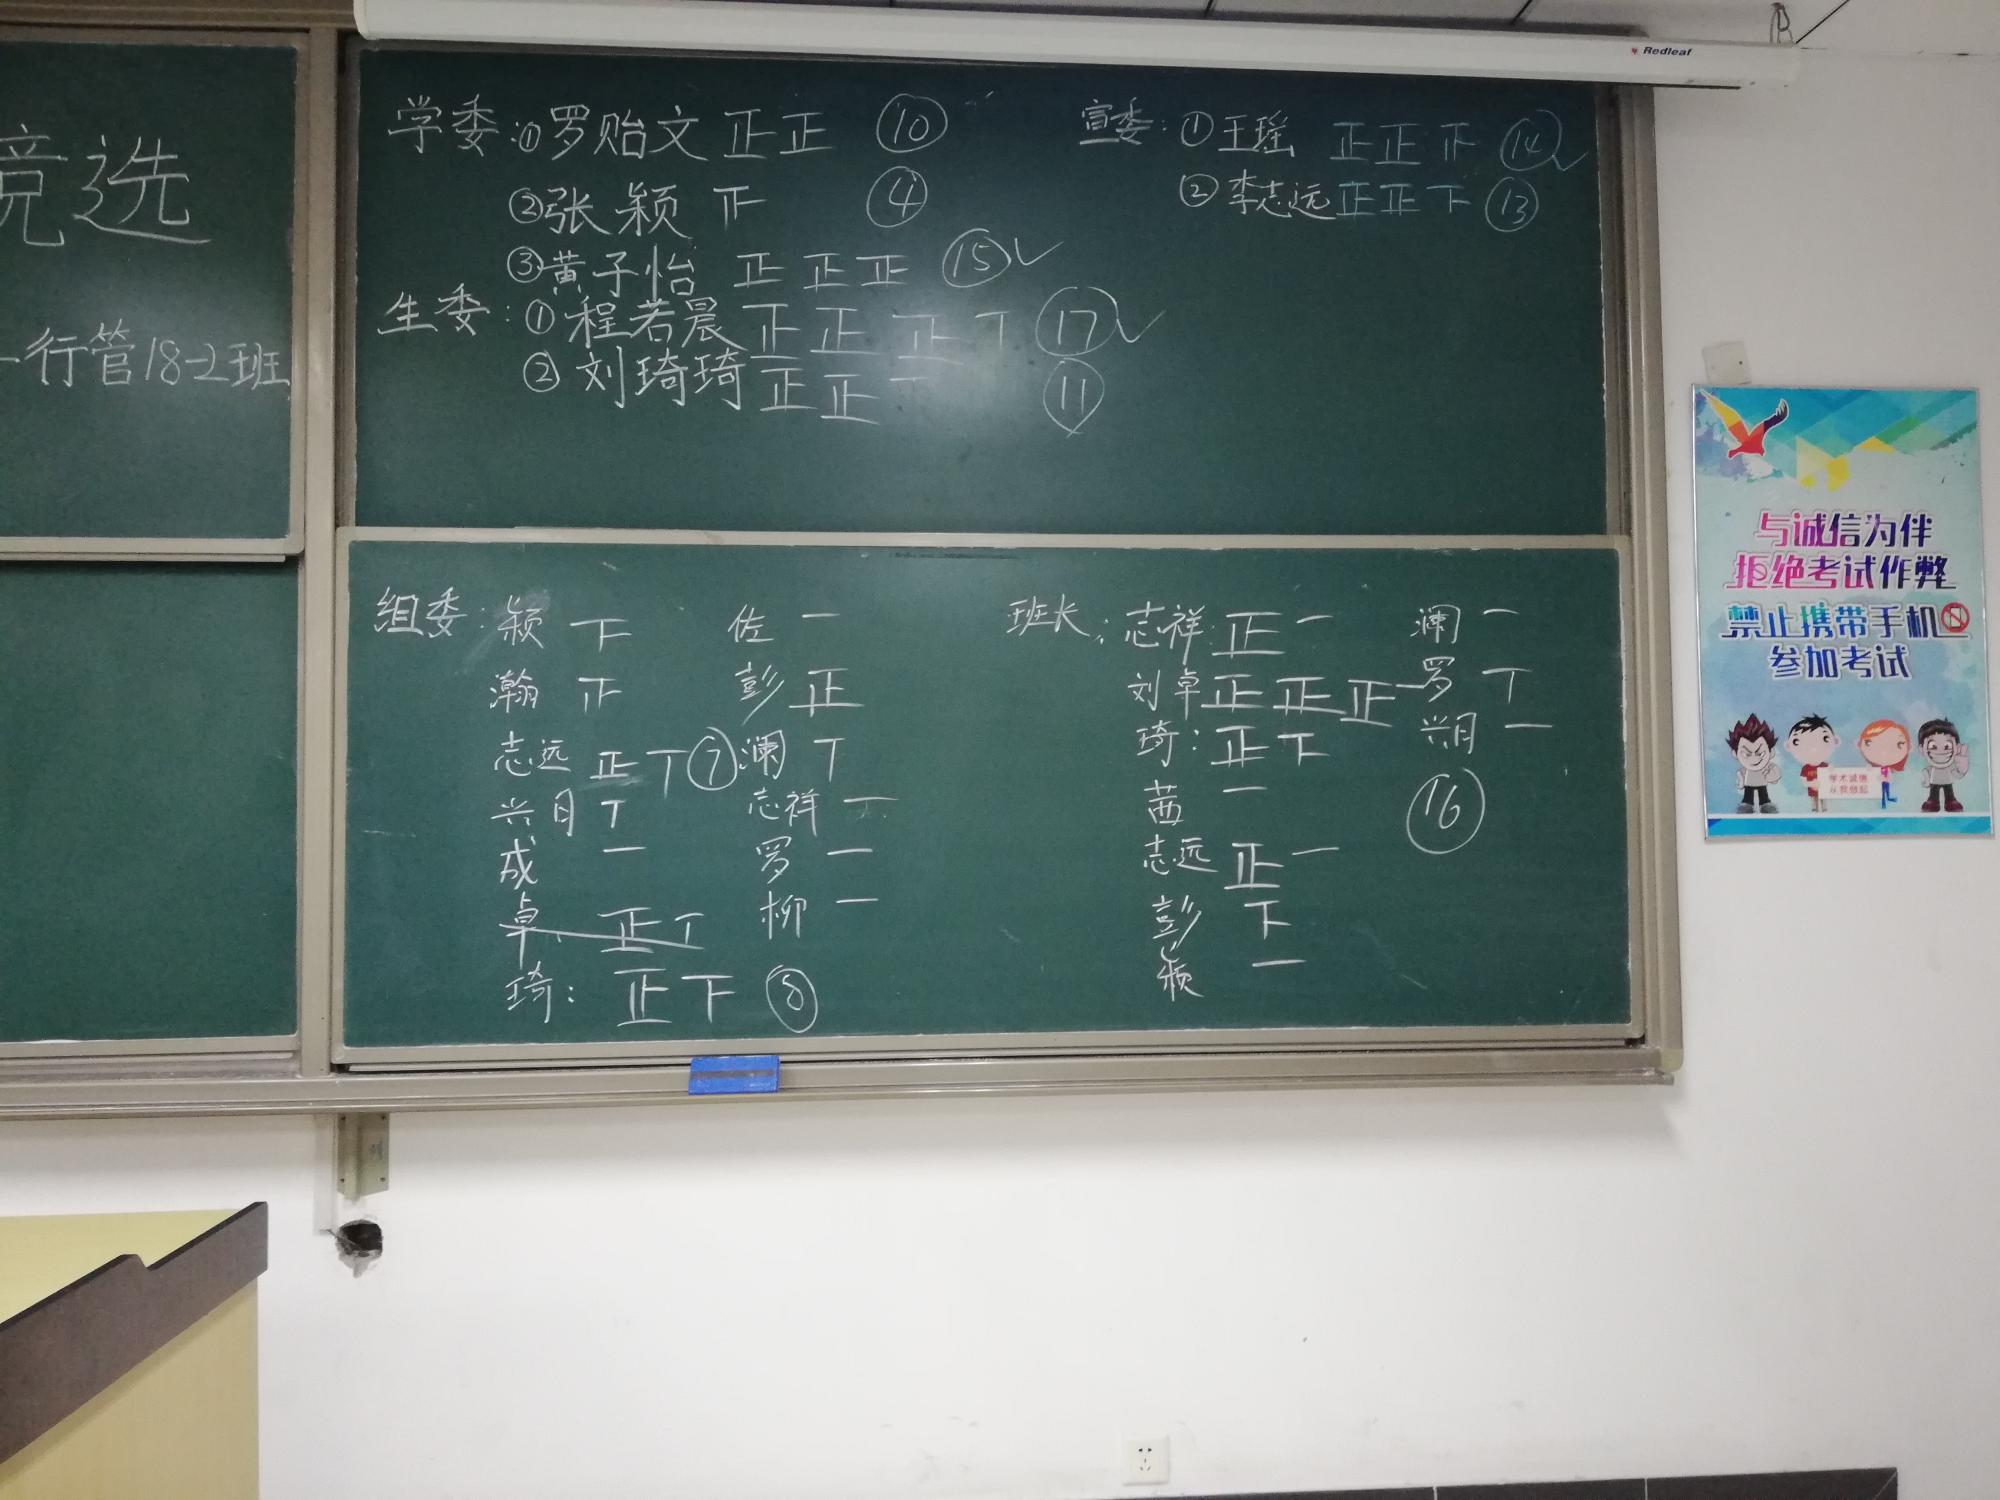 Redleaf
竞选
一行管18-2班
学委:①罗贻文 正正 ⑩
②张颖 正 ④
③黄子怡 正正正 ⑮✓
生委:①程若晨 正正正丅 ⑰✓
②刘琦琦 正正一 ⑪
宣委:①王瑶 正正正 ⑭✓
②李志远 正正下 ⑬
组委:颖 下
瀚 正
志远 正丅 ⑦
兴月 丅
成 一
卓 正丅
琦: 正下 ⑧
佐 一
彭 正
澜 丅
志祥 一
罗 一
柳 一
班长:志祥 正一
刘卓 正正正一
琦: 正下
茜 一
志远 正一
彭 下
颖 一
澜 一
罗 丅
兴月 一
⑯
与诚信为伴
拒绝考试作弊
禁止携带手机
参加考试
学术诚信
从我做起